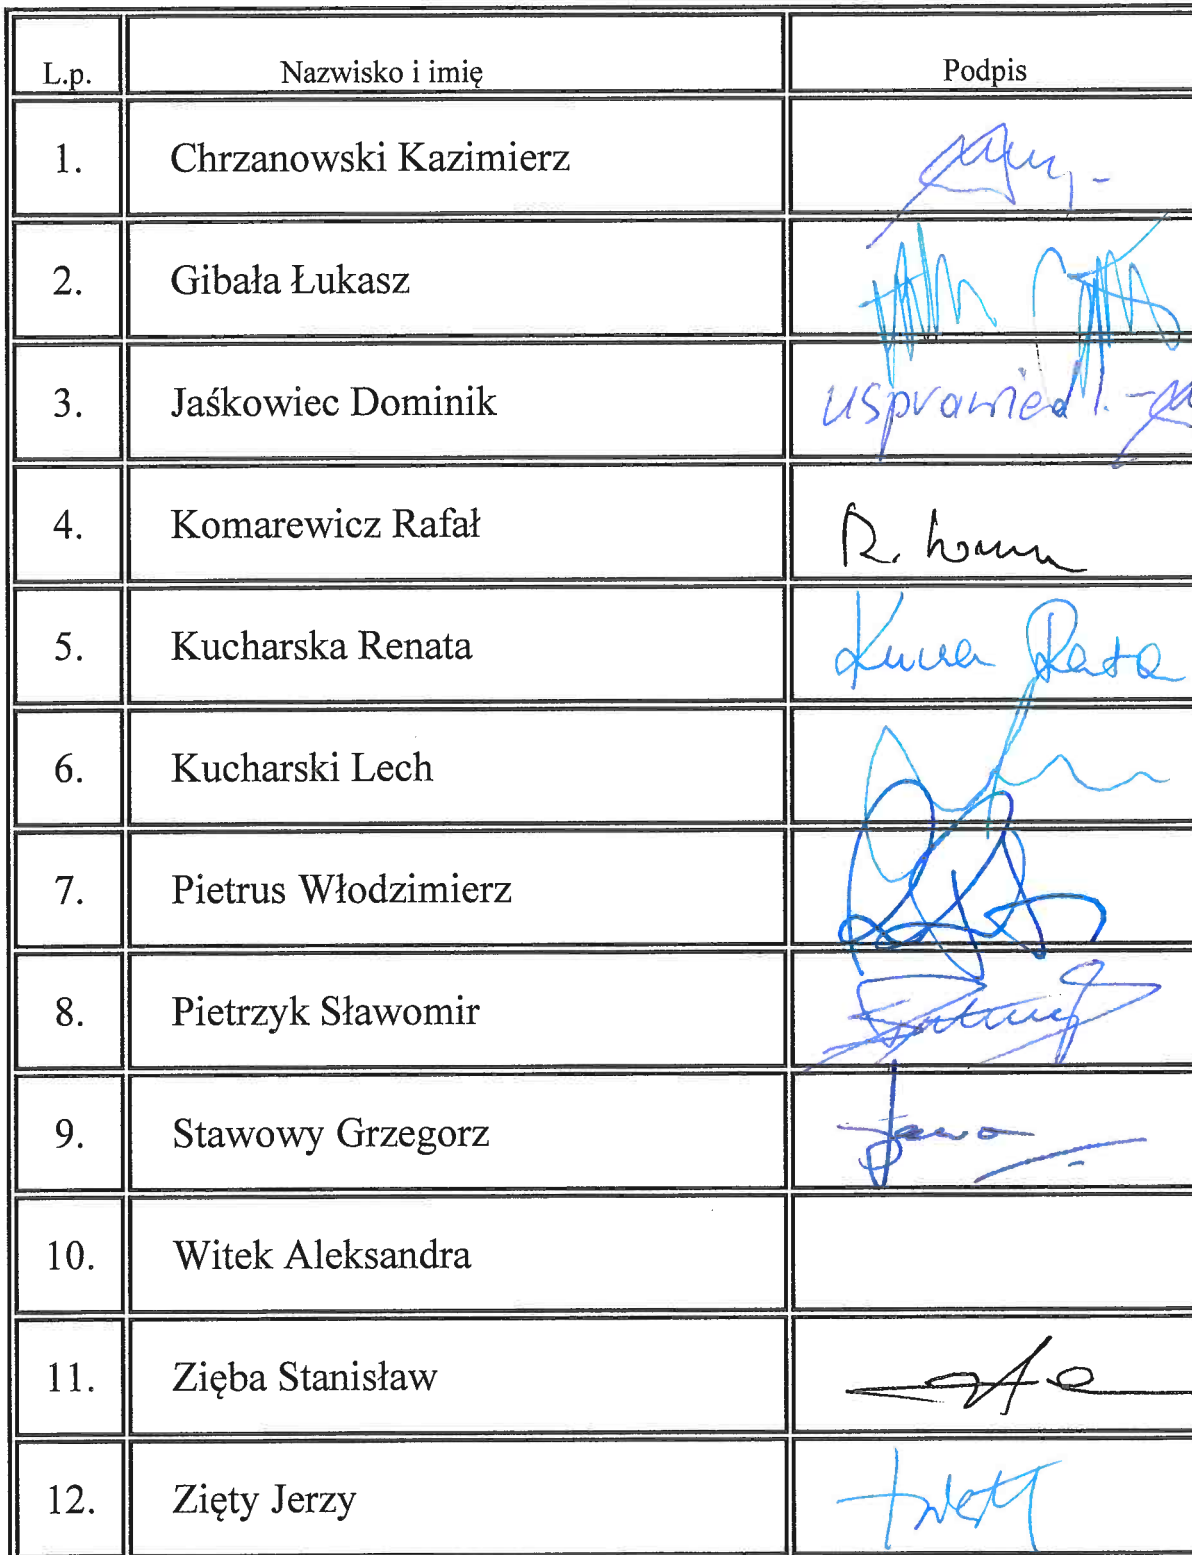 L.p. Nazwisko i imię Podpis
1. Chrzanowski Kazimierz
2. Gibała Łukasz
3. Jaśkowiec Dominik usprawiedl. -
4. Komarewicz Rafał
5. Kucharska Renata
6. Kucharski Lech
7. Pietrus Włodzimierz
8. Pietrzyk Sławomir
9. Stawowy Grzegorz
10. Witek Aleksandra
11. Zięba Stanisław
12. Zięty Jerzy